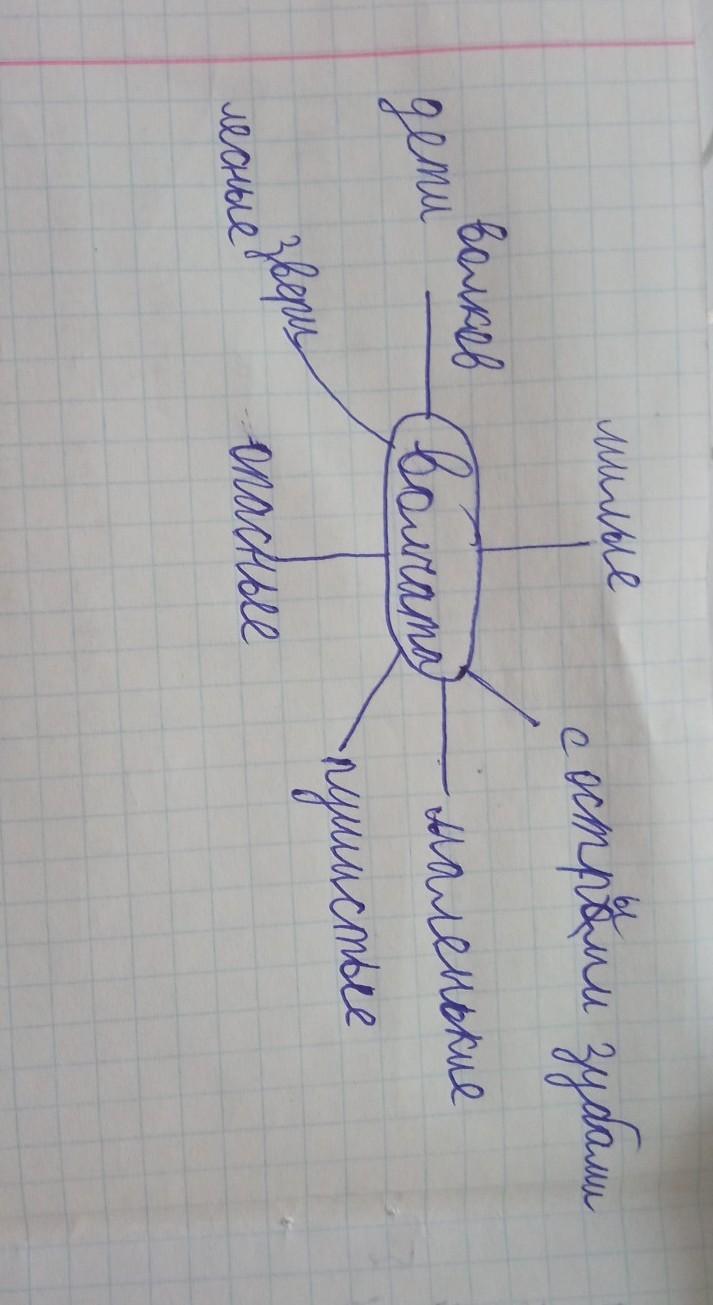 милые
дети волков
с острыми зубами
волчата
маленькие
лесные звери
пушистые
опасные